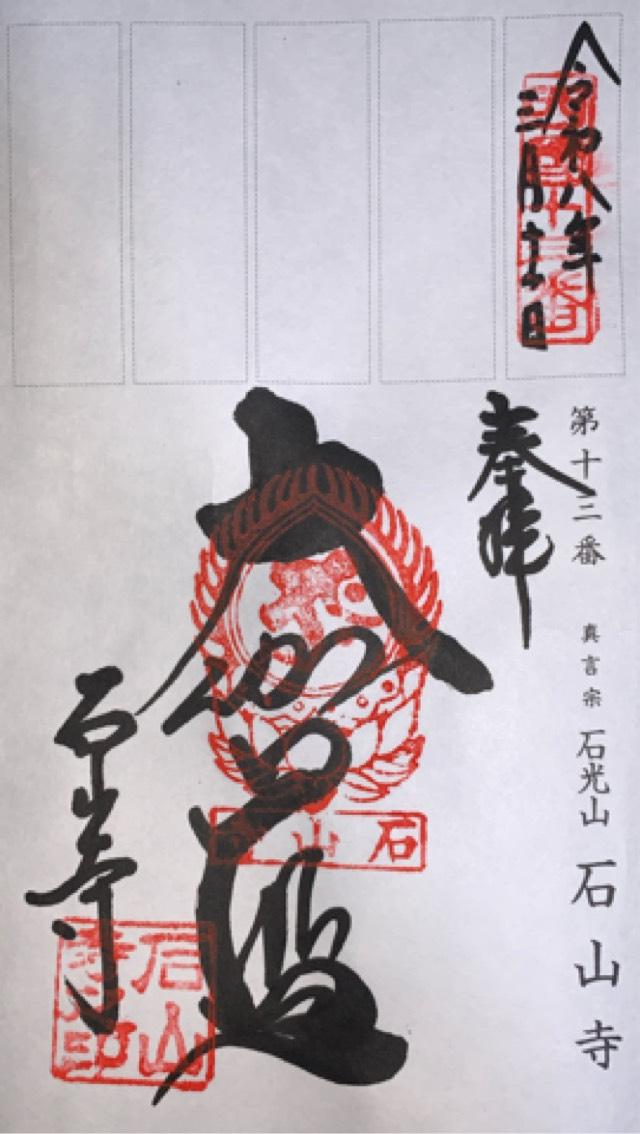 令和八年
三月十一日
第十三番 真言宗 石光山 石山寺
奉拝
大伽藍
石山寺
石山
石山寺印